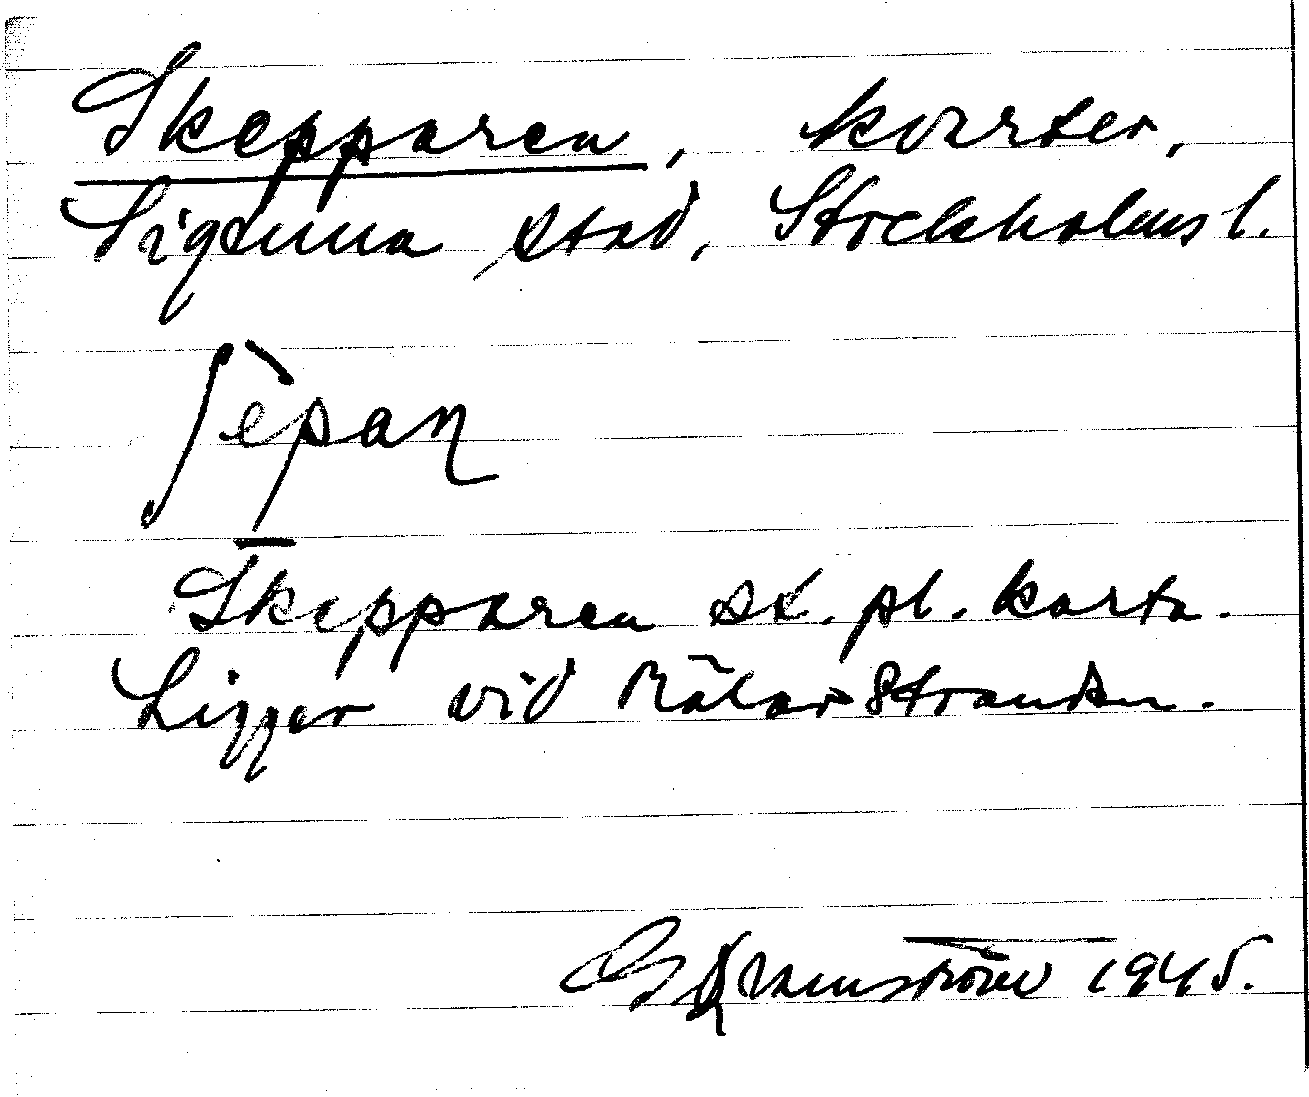 Skepparen, kvarter,
Sigtuna stad, Stockholms l.
ʃèpan
Skepparen st. pl. karta.
Ligger vid Mälarstranden.
1945.